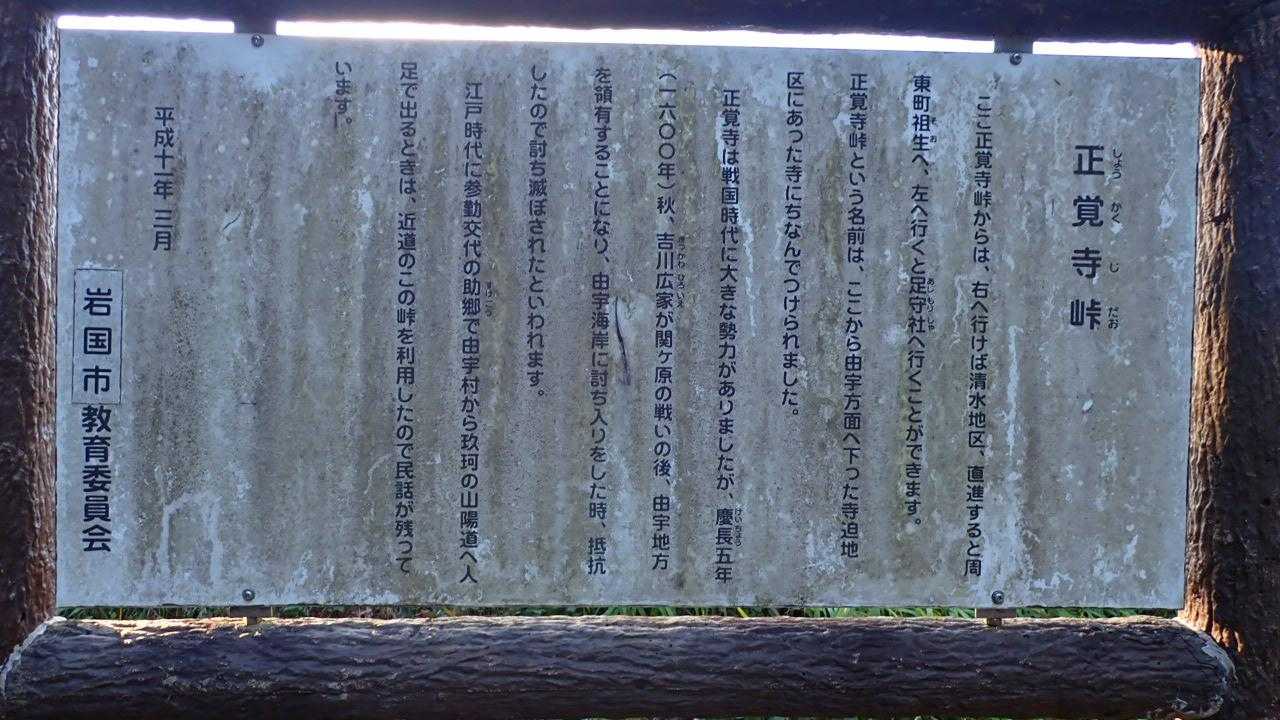 正覚寺峠
しょうかくじだお
ここ正覚寺峠からは、右へ行けば清水地区、直進すると周
東町祖生へ、左へ行くと足守社へ行くことができます。
そお
あしもりしゃ
正覚寺峠という名前は、ここから由宇方面へ下った寺迫地
区にあった寺にちなんでつけられました。
正覚寺は戦国時代に大きな勢力がありましたが、慶長五年
けいちょう
(一六〇〇年)秋、吉川広家が関ヶ原の戦いの後、由宇地方
きっかわひろいえ
を領有することになり、由宇海岸に討ち入りをした時、抵抗
したので討ち滅ぼされたといわれます。
江戸時代に参勤交代の助郷で由宇村から玖珂の山陽道へ人
すけごう
足で出るときは、近道のこの峠を利用したので民話が残って
います。
平成十一年 三月
岩国市教育委員会